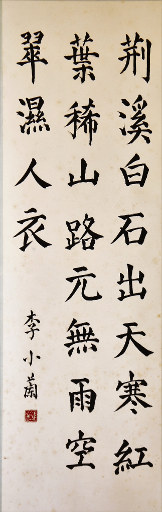 荆溪白石出天寒紅
葉稀山路元無雨空
翠濕人衣
李小蘭